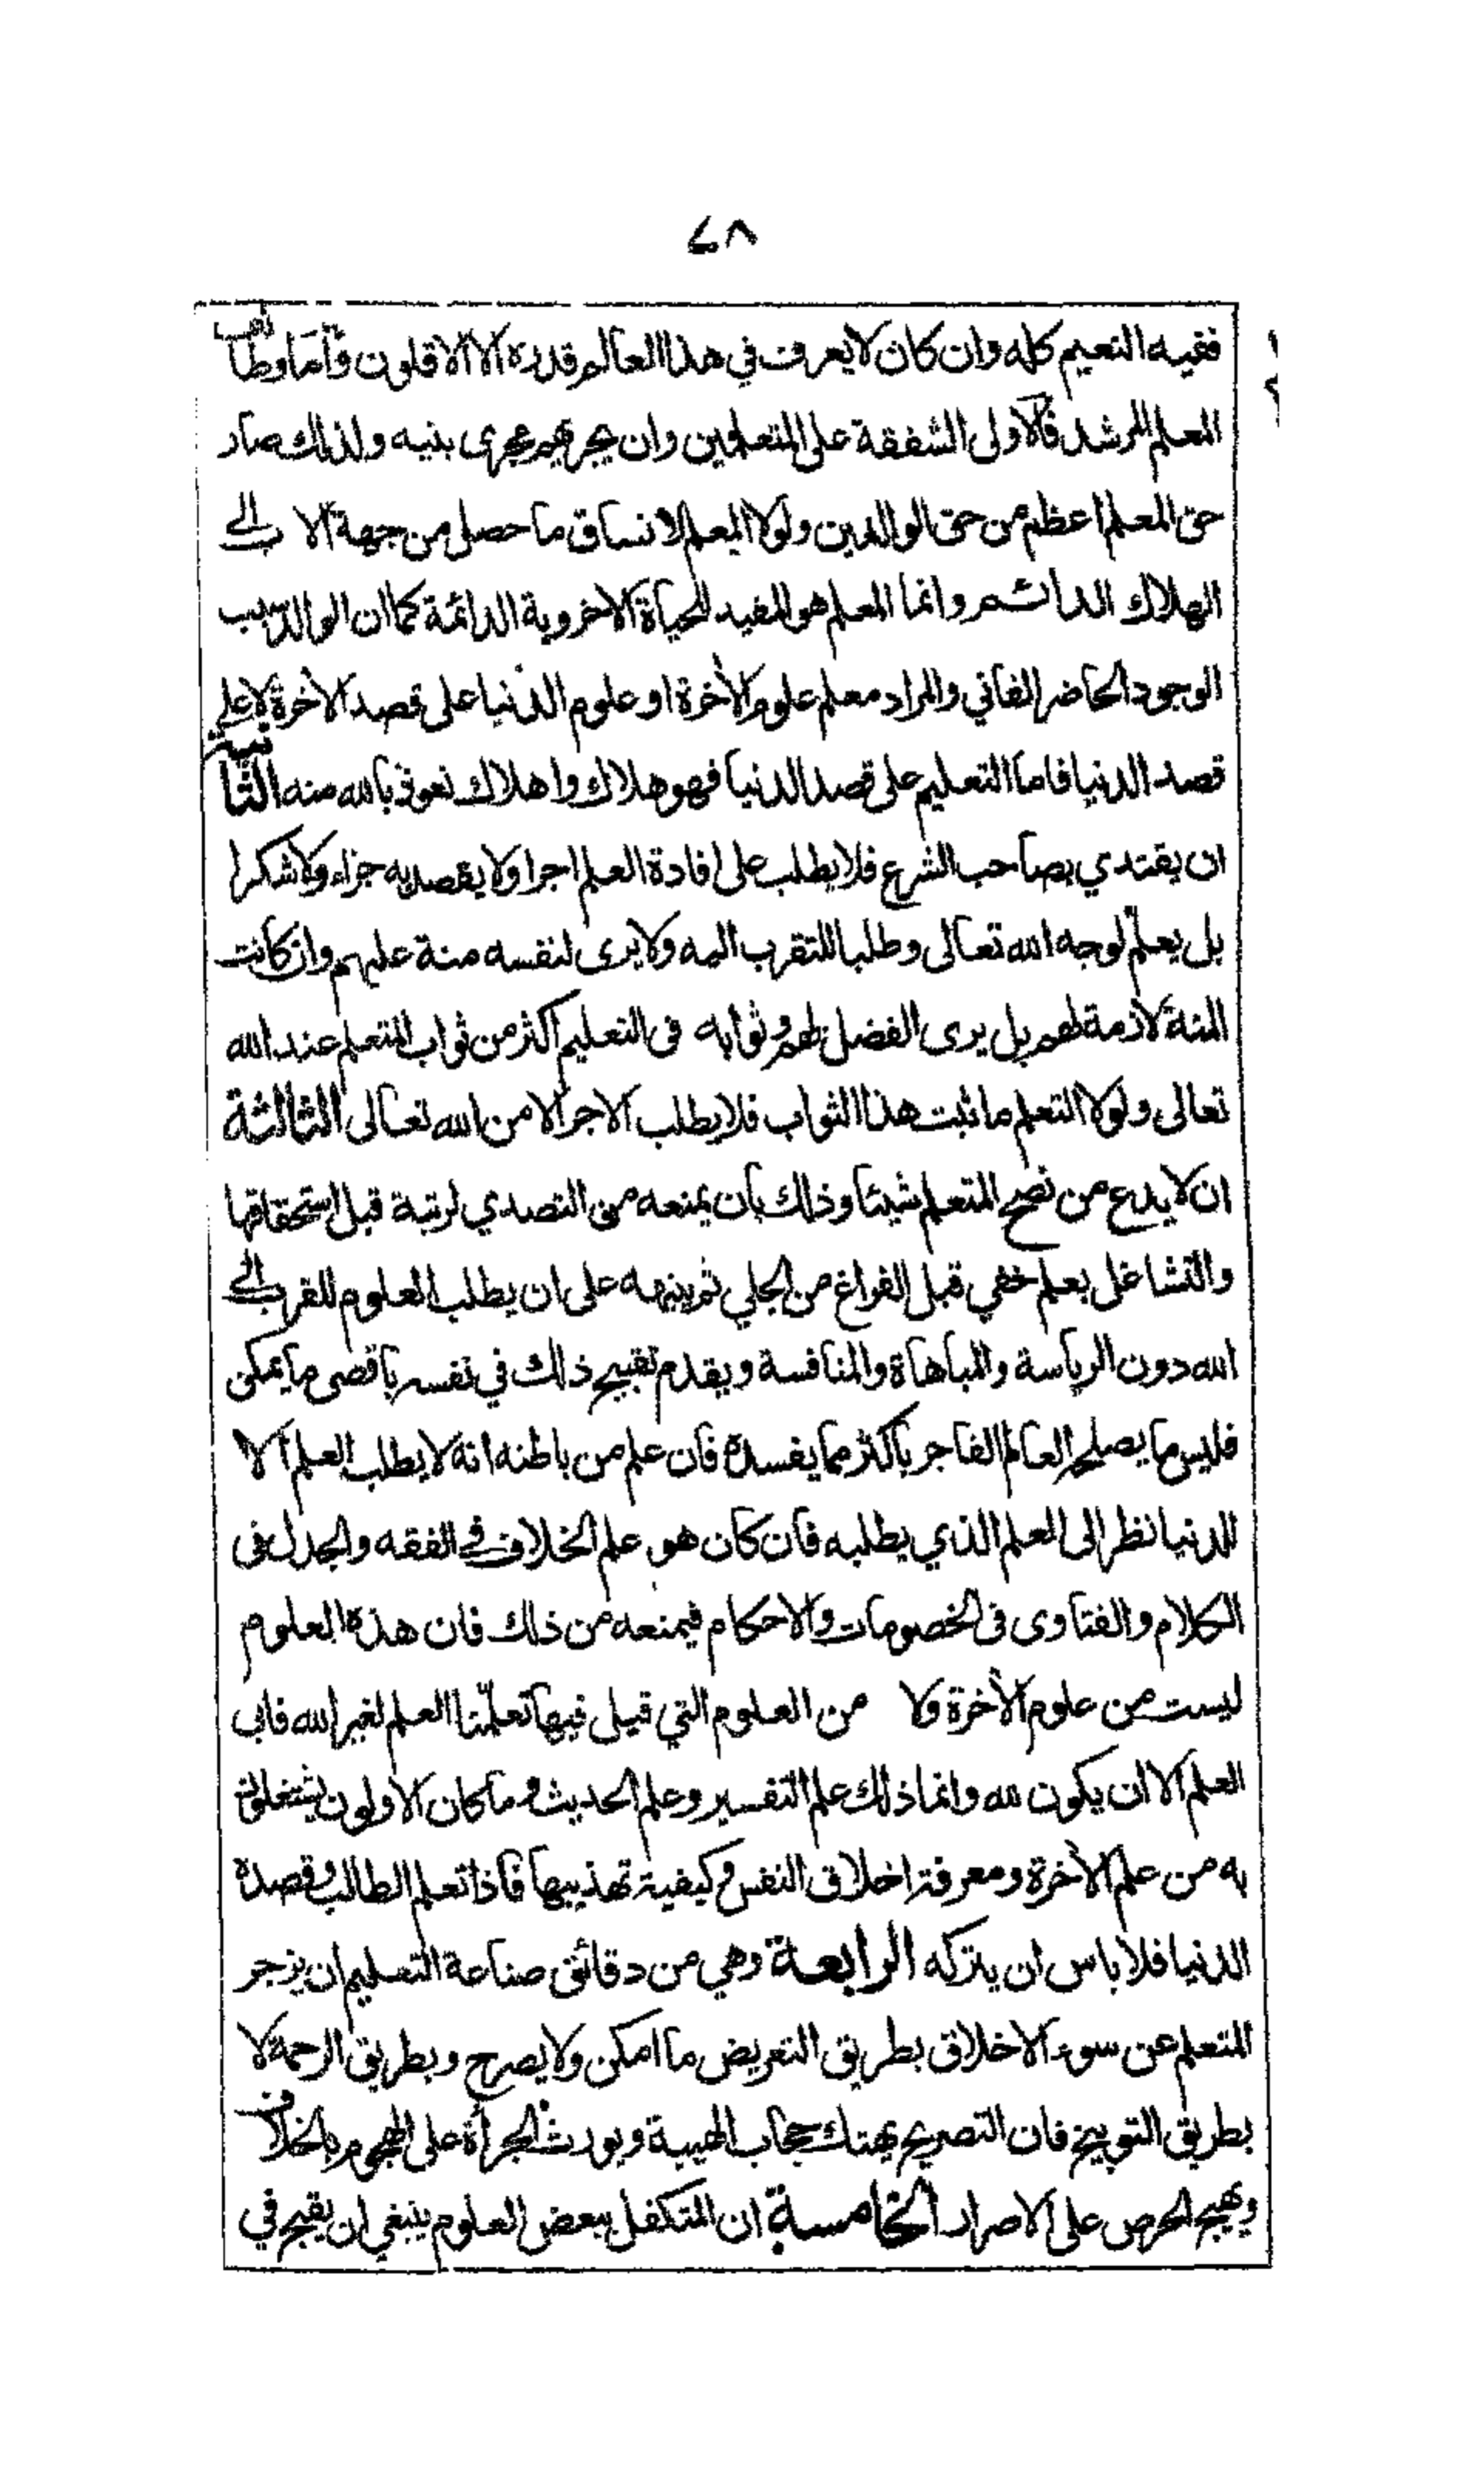 ٤٨
ففيه النعيم كله وان كان لا يعرف في هذا العالم قدره الا الاقلون وأما وظائف
المعلم المرشد فالاولى الشفقة على المتعلمين وان يجريهم مجرى بنيه ولذلك صار
حق المعلم اعظم من حق الوالدين ولولا المعلم لانساق ما حصل من جهة الاب الى
الهلاك الدائم وانما المعلم هو المفيد للحياة الاخروية الدائمة كما ان الوالد سبب
الوجود الحاضر الفاني والمراد معلم علوم الآخرة او علوم الدنيا على قصد الآخرة لا على
قصد الدنيا فاما التعليم على قصد الدنيا فهو هلاك واهلاك نعوذ بالله منه الثانية
ان يقتدي بصاحب الشرع فلا يطلب على افادة العلم اجرا ولا يقصد به جزاء ولا شكرا
بل يعلم لوجه الله تعالى وطلبا للتقرب اليه ولا يرى لنفسه منة عليهم وان كانت
المنة لازمة لهم بل يرى الفضل لهم وثوابه فى التعليم اكثر من ثواب المتعلم عند الله
تعالى ولولا التعلم ما ثبت هذا الثواب فلا يطلب الاجر الا من الله تعالى الثالثة
ان لا يدع من نصح المتعلم شيئا وذلك بان يمنعه من التصدي لرتبة قبل استحقاقها
والتشاغل بعلم خفي قبل الفراغ من الجلي ثم ينبهه على ان يطلب العلوم للقرب الى
الله دون الرياسة والمباهاة والمنافسة ويقدم تقبيح ذلك في نفسه باقصى ما يمكن
فليس ما يصلح العالم الفاجر باكثر مما يفسده فان علم من باطنه انه لا يطلب العلم الا
للدنيا نظر الى العلم الذي يطلبه فان كان هو علم الخلاف في الفقه والجدل فى
الكلام والفتاوى فى الخصومات والاحكام فيمنعه من ذلك فان هذه العلوم
ليست من علوم الآخرة ولا من العلوم التي قيل فيها تعلمنا العلم لغير الله فابى
العلم الا ان يكون لله وانما ذلك علم التفسير وعلم الحديث وما كان الاولون يشتغلون
به من علم الآخرة ومعرفة اخلاق النفس وكيفية تهذيبها فاذا تعلم الطالب وقصده
الدنيا فلا باس ان يتركه الرابعة وهي من دقائق صناعة التعليم ان يزجر
المتعلم عن سوء الاخلاق بطريق التعريض ما امكن ولا يصرح وبطريق الرحمة لا
بطريق التوبيخ فان التصريح يهتك حجاب الهيبة ويورث الجرأة على الهجوم بالخلاف
ويهيج الحرص على الاصرار الخامسة ان المتكفل ببعض العلوم ينبغي ان يقبح في